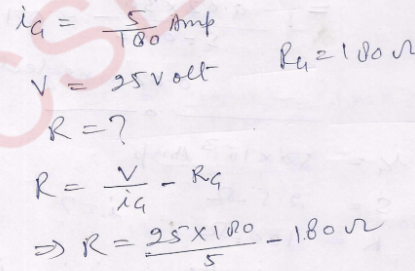 i_G = 5/180 Amp
V = 25 Volt R_G = 180 Ω
R = ?
R = V/i_G - R_G
⇒ R = 25×180/5 - 180 Ω